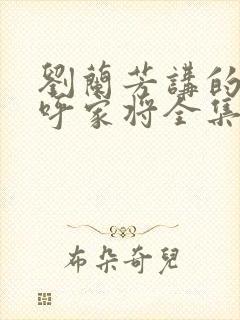 劉蘭芳講的
呼家将全集
布朵奇兒